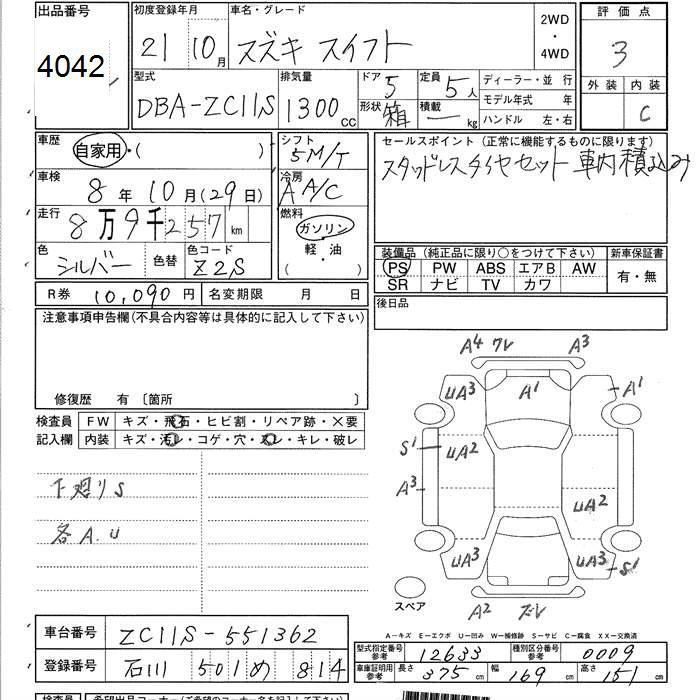 出品番号
4042
初度登録年月
21 10月
車名・グレード
スズキ スイフト
2WD
・
4WD
評価点
3
外装 内装
C
型式
DBA-ZC11S
排気量
1300cc
ドア 5
形状 箱
定員 5人
積載 — kg
ディーラー・並 行
モデル年式 年
ハンドル 左・右
車歴
自家用・( )
車検
8年10月(29日)
走行
8万9千257km
色
シルバー
色替
色コード
Z2S
シフト
5M/T
冷房
A A/C
燃料
ガソリン
軽・油
( )
セールスポイント(正常に機能するものに限ります)
スタッドレスタイヤセット 車内積込み
装備品(純正品に限り○をつけて下さい)
新車保証書
PS PW ABS エアB AW
SR ナビ TV カワ
有・無
R券 10,090円
名変期限 月 日
後日品
注意事項申告欄(不具合内容等は具体的に記入して下さい)
修復歴 有 〔箇所 〕
検査員
記入欄
FW キズ・飛石・ヒビ割・リペア跡・×要
内装 キズ・汚レ・コゲ・穴・スレ・キレ・破レ
下廻りS
各A.U
A4 ワレ A3
UA3 A1 A1
S1 UA2
A3 UA2
UA3 UA3 S1
A2 ズレ
スペア
A－キズ E－エクボ U－凹み W－補修跡 S－サビ C－腐食 XX－交換済
車台番号
ZC11S-551362
登録番号
石川 501 め 814
型式指定番号
参考
12633
種別区分番号
参考
0009
車庫証明用
参考
長さ 375cm
幅 169cm
高さ 151cm
検査員
希望出品コーナー(ご希望のコーナー名を記入下さい)